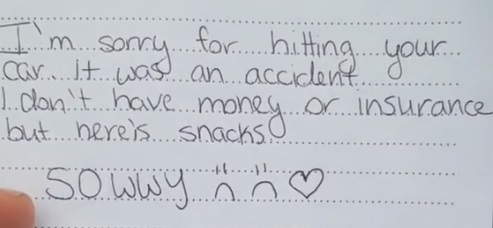 I'm sorry for hitting your
car. it was an accident
I don't have money or insurance
but here's snacks!
SOWWY ∩̈ ∩̈ ♡